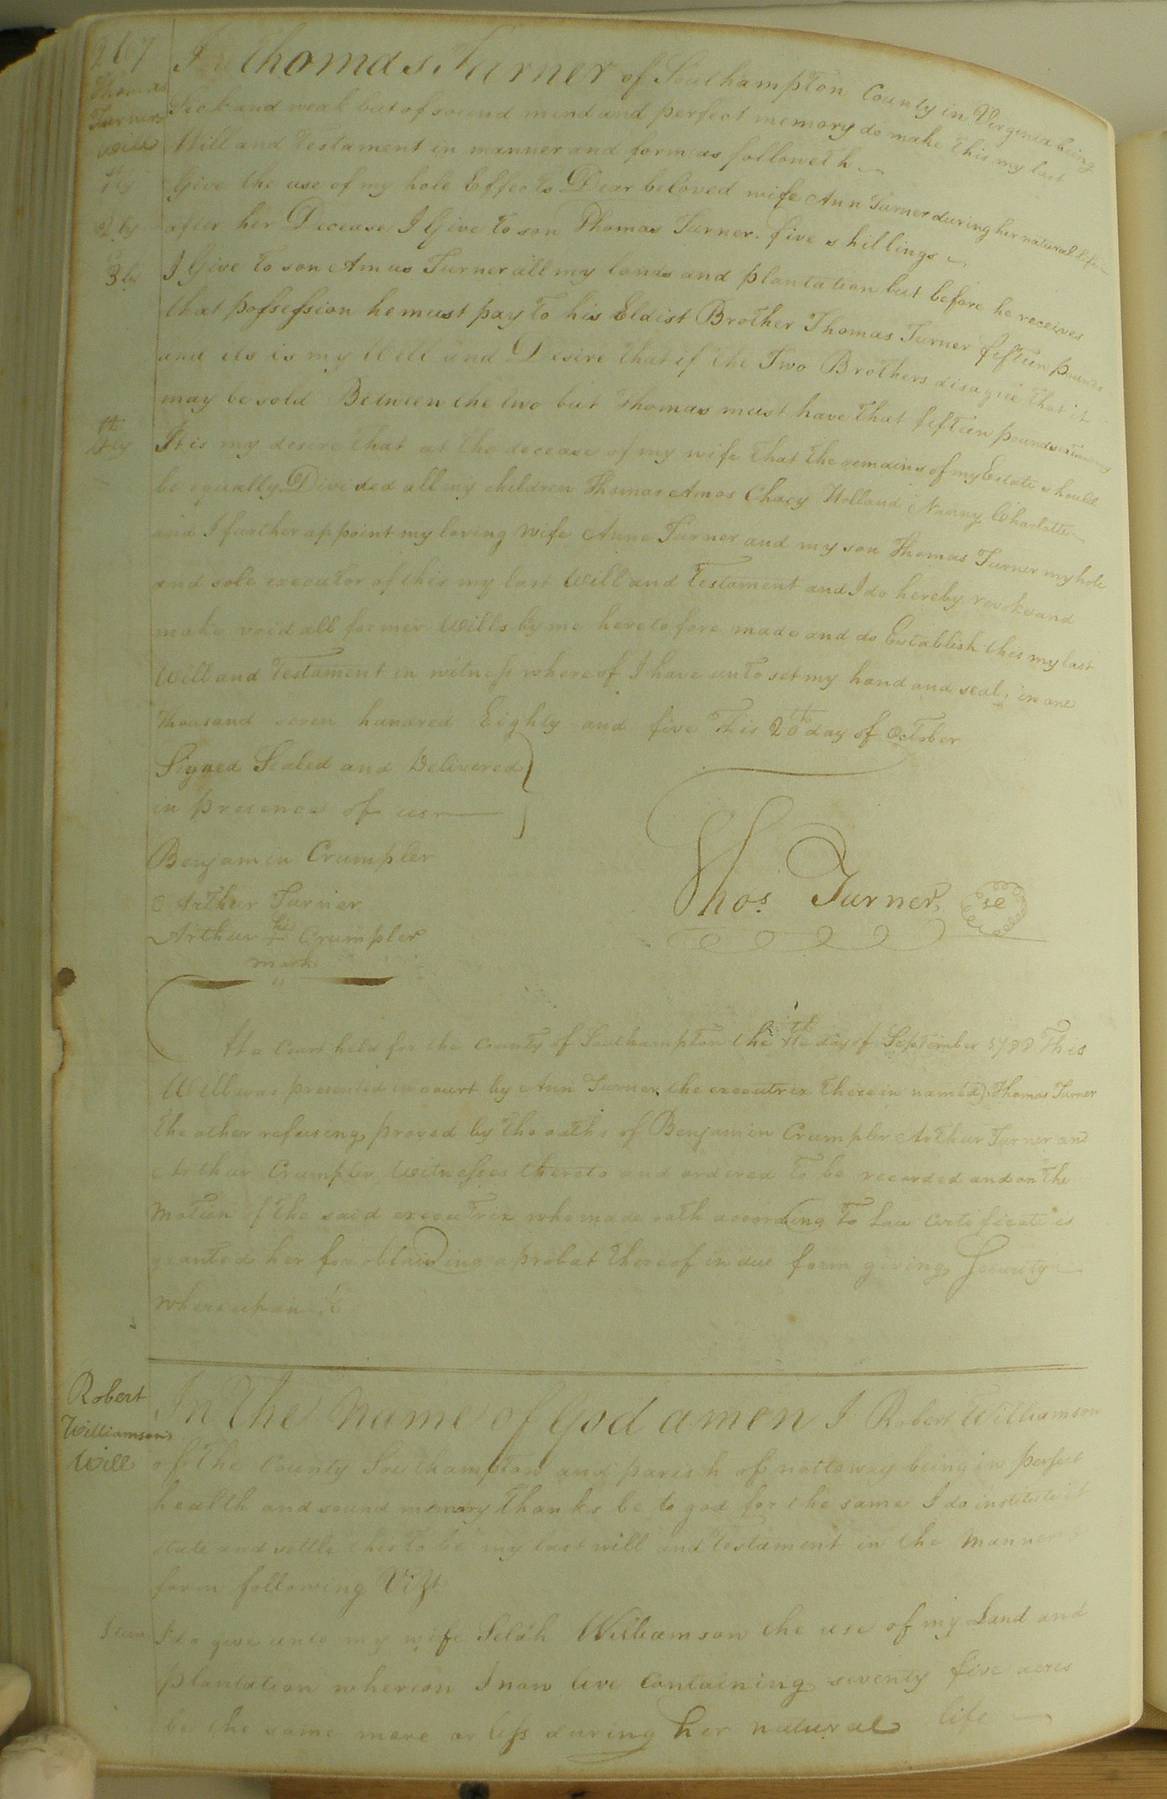 267
Thomas Turners Will
I Thomas Turner of Southampton County in Virginia being
Sick and weak but of sound mind and perfect memory do make this my last
Will and Testament in manner and form as followeth
1ly Give the use of my hole Effects Dear beloved wife Ann Turner during her natural life
2ly after her Decease I Give to son Thomas Turner five shillings
3ly I Give to son Amus Turner all my lands and plantation but before he receives
that possession he must pay to his Eldist Brother Thomas Turner fifteen pounds
and its is my Will and Desire that if the Two Brothers disagree that it
may be sold Between the two but Thomas must have that fifteen pounds
4ly It is my desire that at the decease of my wife that the remains of my Estate should
be equally Divided all my children Thomas Amos Chacy Holland Nanny Charlotte
and I further appoint my loving wife Anne Turner and my son Thomas Turner my hole
and sole executor of this my last Will and Testament and I do hereby revoke and
make void all former Wills by me heretofore made and do Establish this my last
Will and Testament in witness whereof I have unto set my hand and seal, in one
Thousand seven hundred Eighty and five This 20th day of October
Signed Sealed and Delivered
in presence of us
Benjamin Crumpler
Arthur Turner
Arthur Crumpler
mark
Thos. Turner se
At a Court held for the County of Southampton the day of September 1788 This
Will was presented in court by Ann Turner the executrix therein named, Thomas Turner
the other refusing, proved by the oaths of Benjamin Crumpler Arthur Turner and
Arthur Crumpler Witnesses thereto and ordered to be recorded and on the
Motion of the said executrix who made oath according to Law certificate is
granted her for obtaining a probat thereof in due form giving Security
whereupon &c
Robert Williamsons Will
In The name of God amen I Robert Williamson
of the County Southampton and parish of nottoway being in perfect
health and sound memory thanks be to god for the same I do institute
state and settle this to be my last will and testament in the manner &
form following Vizt
Item I do give unto my wife Selah Williamson the use of my Land and
plantation whereon I now live Containing seventy five acres
be the same more or less during her natural life